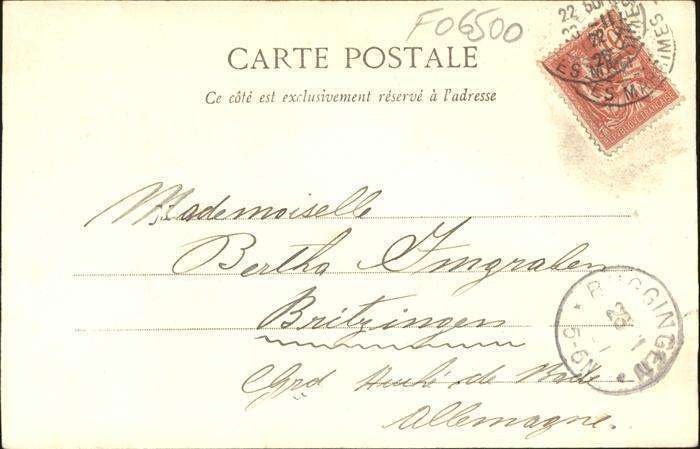 F06500
CARTE POSTALE
Ce côté est exclusivement réservé à l'adresse
Mademoiselle
Bertha Imgraben
Britzingen
Grd Duché de Bade
Allemagne.
22
22